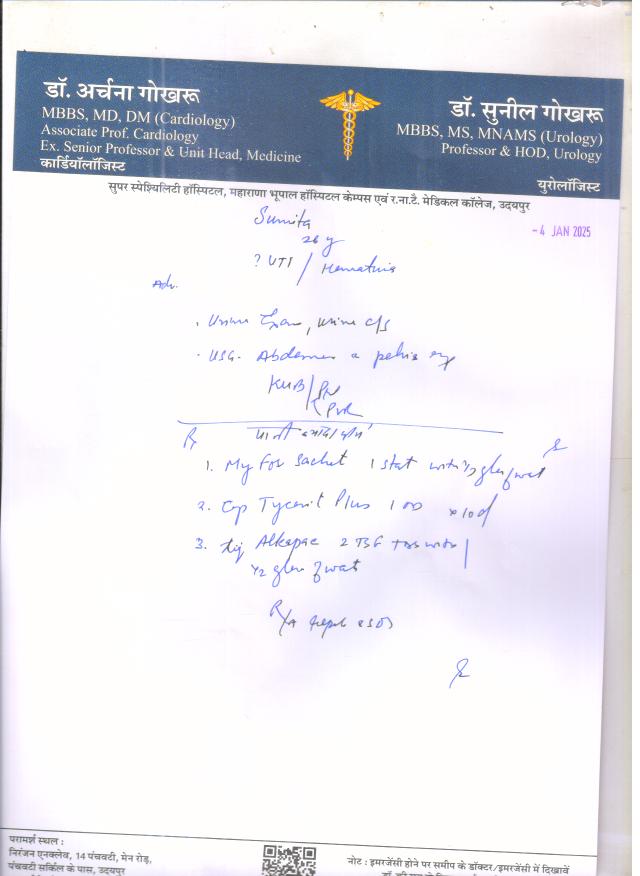 डॉ. अर्चना गोखरू
MBBS, MD, DM (Cardiology)
Associate Prof. Cardiology
Ex. Senior Professor & Unit Head, Medicine
कार्डियॉलॉजिस्ट
डॉ. सुनील गोखरू
MBBS, MS, MNAMS (Urology)
Professor & HOD, Urology
युरोलॉजिस्ट
सुपर स्पेश्यिलिटी हॉस्पिटल, महाराणा भूपाल हॉस्पिटल केम्पस एवं र.ना.टै. मेडिकल कॉलेज, उदयपुर
- 4 JAN 2025
Sumita
26 y
? UTI / Hematuria
Adv.
Urine Exam, urine c/s
USG. Abdomen pelvis
KUB
PVR
Rx
1. My For Sachet 1 stat with 1/2 glass of wat
2. Cap Plus 1 OD x10d
3. 2 TSF TDS with
1/2 glass of wat
परामर्श स्थल :
निरंजन एनक्लेव, 14 पंचवटी, मेन रोड़,
पंचवटी सर्किल के पास, उदयपुर
नोट : इमरजेंसी होने पर समीप के डॉक्टर/इमरजेंसी में दिखावें